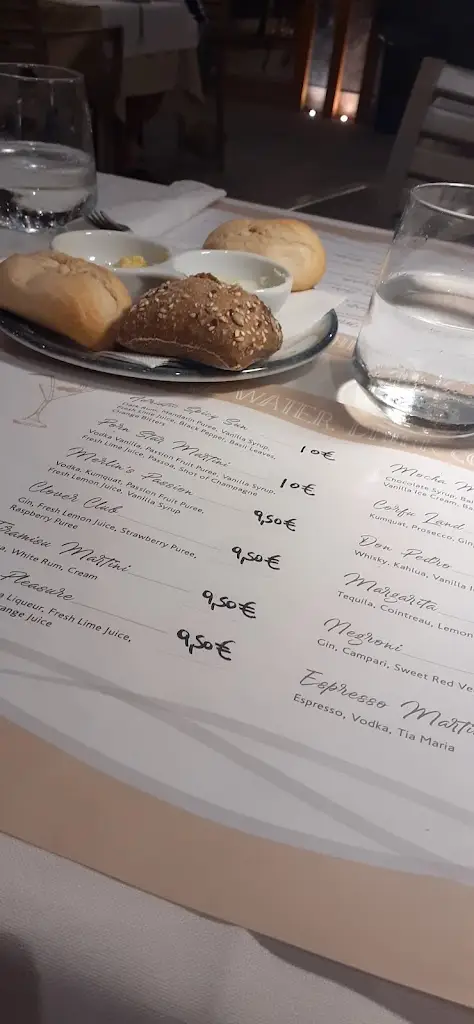 WATER,
Spicy Sun
Dark Rum, Mandarin Puree, Vanilla Syrup,
Fresh Lime Juice, Black Pepper, Basil Leaves,
Orange Bitters
10€
Porn Star Martini
Vodka Vanilla, Passion Fruit Puree, Vanilla Syrup,
Fresh Lime Juice, Passoa, Shot of Champagne
10€
Merlin's Passion
Vodka, Kumquat, Passion Fruit Puree,
Fresh Lemon Juice, Vanilla Syrup
9,50€
Clover Club
Gin, Fresh Lemon Juice, Strawberry Puree,
Raspberry Puree
9,50€
Tiramisu Martini
White Rum, Cream
9,50€
Pleasure
Liqueur, Fresh Lime Juice,
Juice
9,50€
Mocha
Chocolate Syrup,
Vanilla Ice Cream,
Corfu Land
Kumquat, Prosecco,
Don Pedro
Whisky, Kahlua, Vanilla
Margarita
Tequila, Cointreau, Lemon
Negroni
Gin, Campari, Sweet Red
Espresso
Espresso, Vodka, Tia Maria